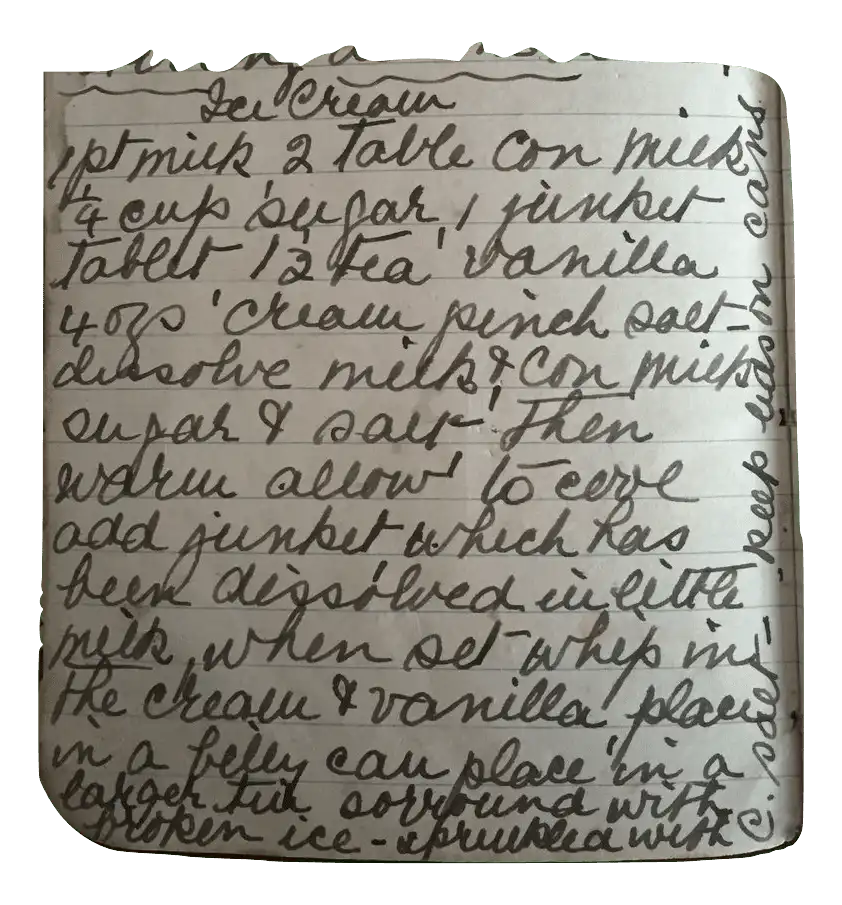 Ice Cream
1 pt milk 2 Table Con Milk
1/4 cup sugar, 1 junket
tablet 1 1/2 tea vanilla
4 ozs cream pinch salt-
dissolve milk & Con Milk
sugar & salt. Then
warm allow to cool
add junket which has
been dissolved in little
milk, when set whip in
the cream & vanilla place
in a billy can place in a
larger tin sorround with
broken ice - sprinkled with
C. salt - keep lids on cans